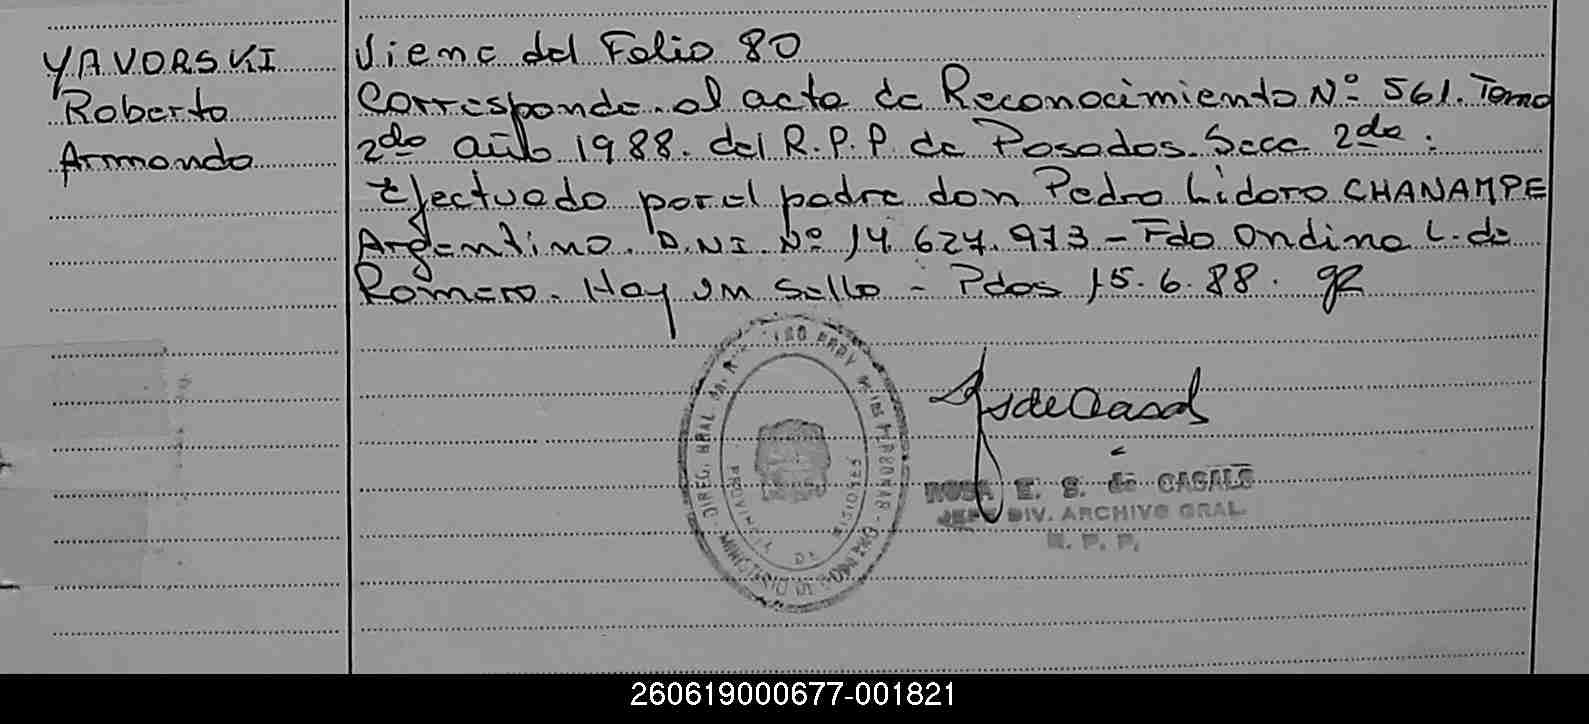 YAVORSKI
Roberto
Armando
Viene del Folio 80
Corresponde al acta de Reconocimiento Nº 561. Tomo
2do año 1988. del R.P.P. de Posadas. Secc 2da.
Efectuado por el padre don Pedro Lidoro CHANAMPE
Argentino. D.N.I. Nº 14 627.973 - Fdo Ondina L. de
Romero. Hay un Sello - Pdas 15.6.88.
DIREG. GRAL
MINISTERIO DE GOBIERNO
PROVINCIA DE MISIONES
ROSA E. S. de CASALS
JEFE DIV. ARCHIVO GRAL.
R. P. P.
260619000677-001821